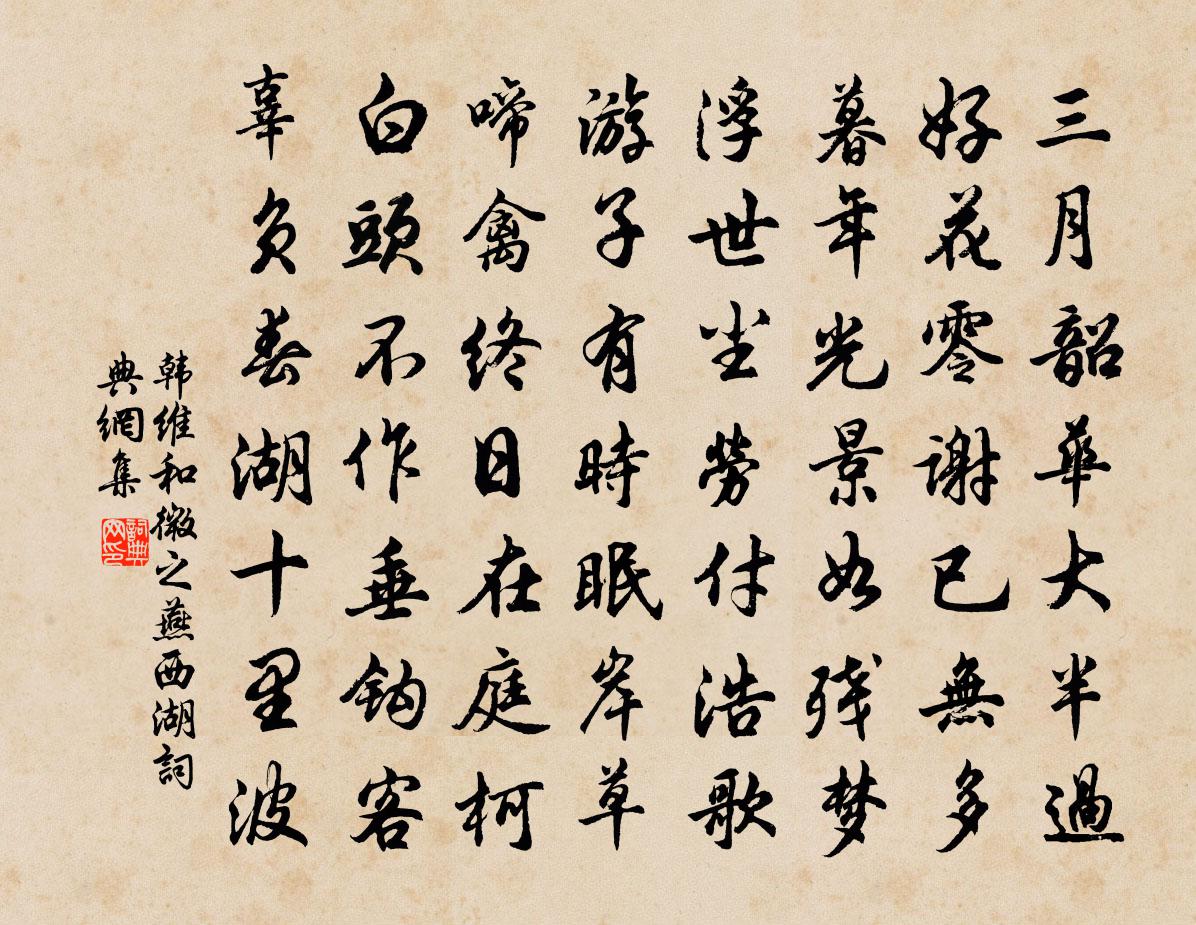 三月韶華大半過
好花零謝已無多
暮年光景如残梦
浮世尘勞付浩歌
游子有時眠岸草
啼禽終日在庭柯
白頭不作垂鈎客
辜负春湖十里波
韩維和微之燕西湖詞
典網集
詞典
网印